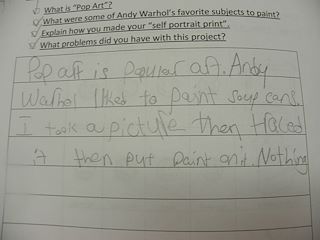 What is "Pop Art"?
What were some of Andy Warhol's favorite subjects to paint?
Explain how you made your "self portrait print".
What problems did you have with this project?
Pop art is Popular art. Andy
Warhol liked to paint soup cans.
I took a picture then traced
it then put paint on it. Nothing